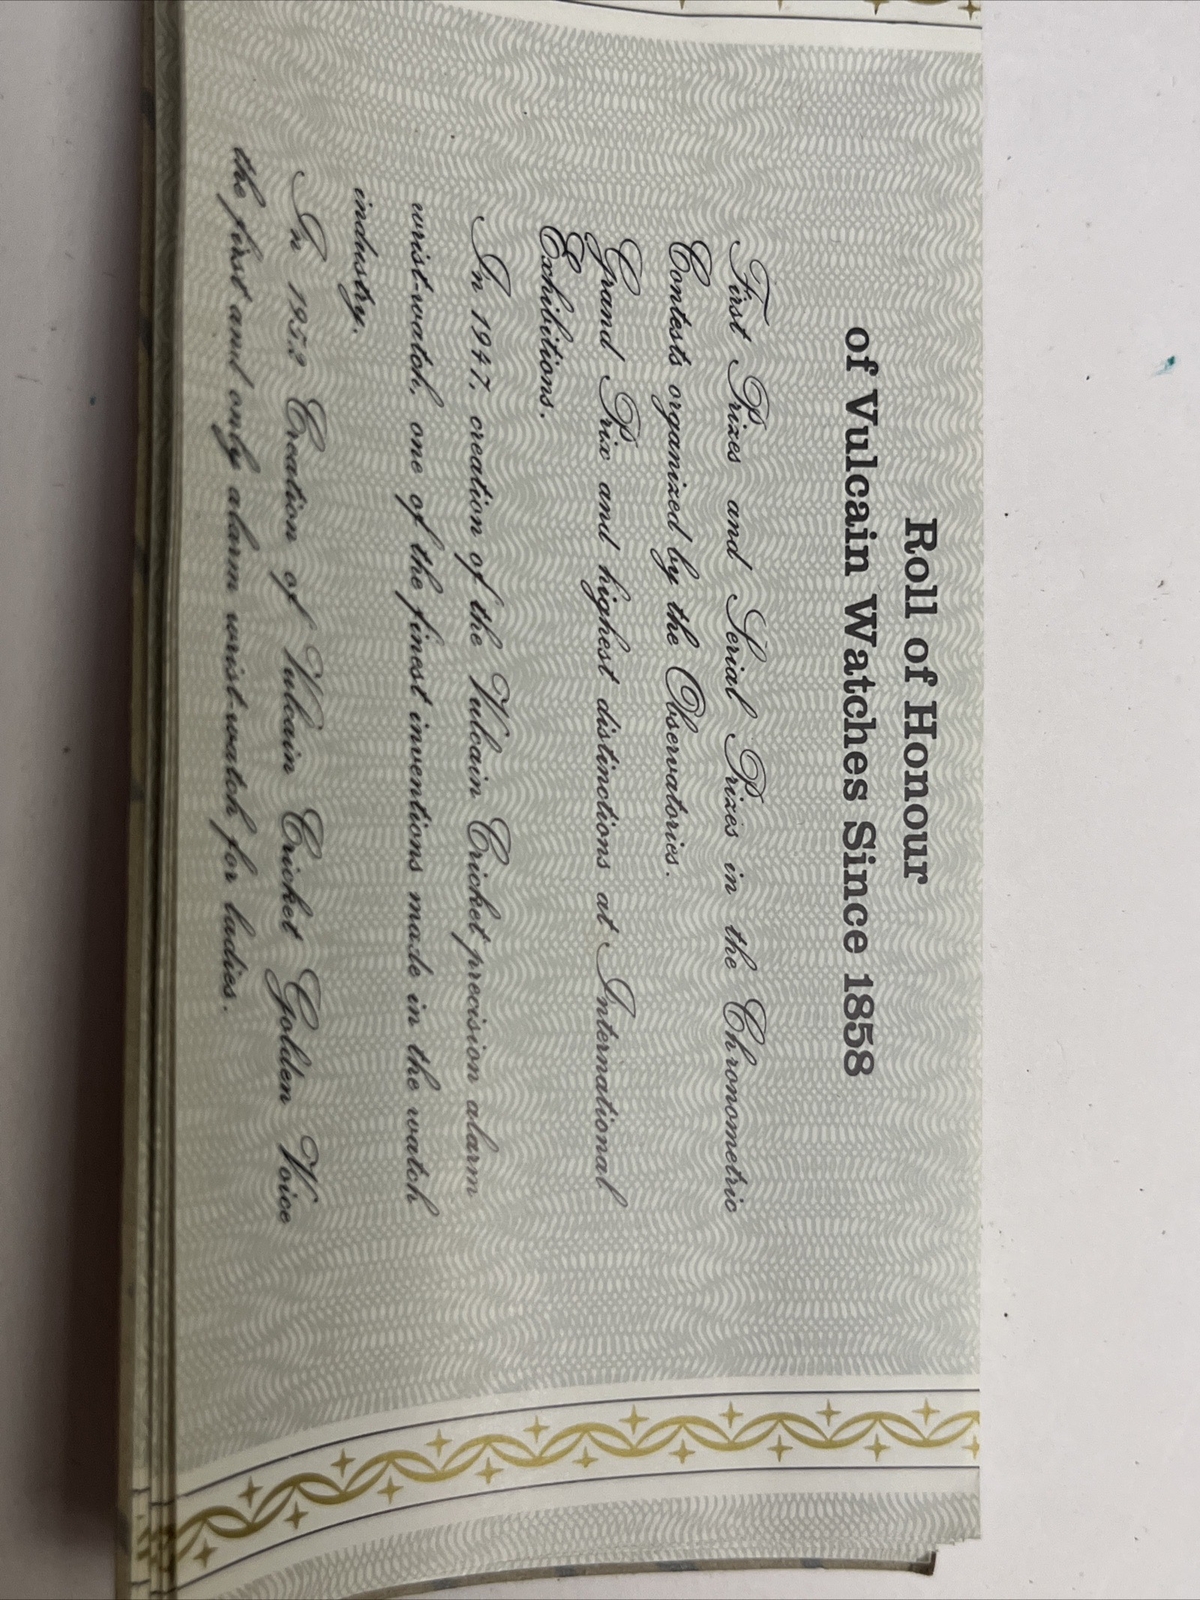 Roll of Honour
of Vulcain Watches Since 1858
First Prizes and Serial Prizes in the Chronometric
Contests organized by the Observatories.
Grand Prix and highest distinctions at International
Exhibitions.
In 1947, creation of the Vulcain Cricket precision alarm
wrist-watch, one of the finest inventions made in the watch
industry.
In 1952 Creation of Vulcain Cricket Golden Voice
the first and only alarm wrist-watch for ladies.